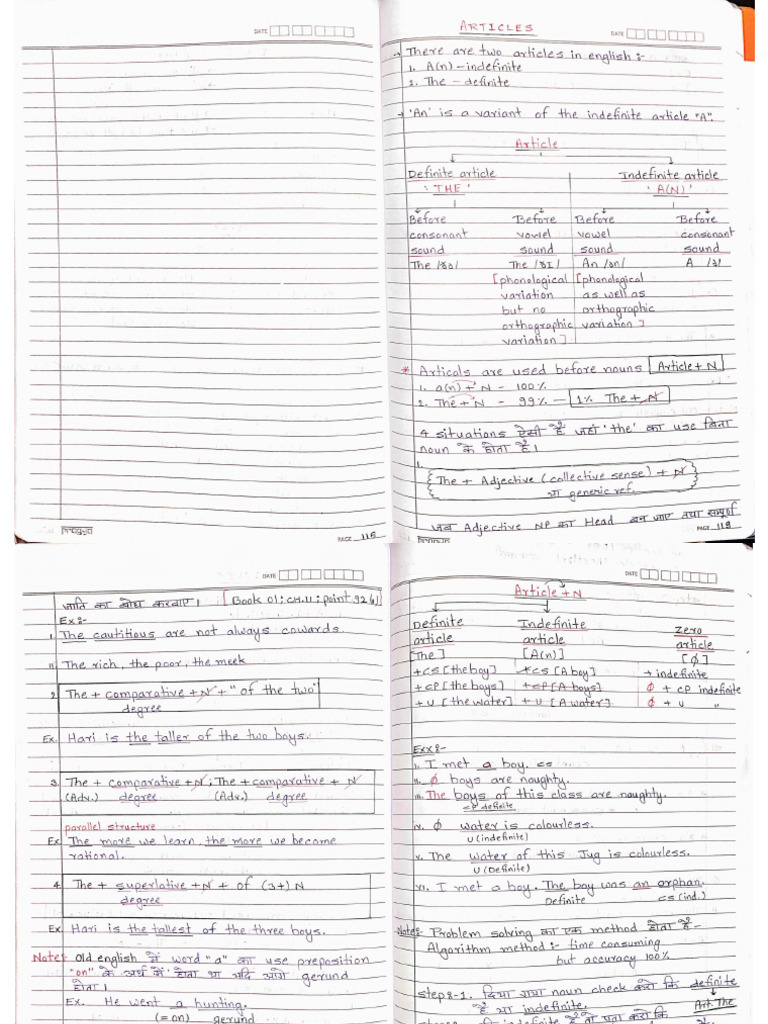 DATE
ARTICLES
DATE
→ There are two articles in english :-
1. A(n) - indefinite
2. The - definite
→ 'An' is a variant of the indefinite article "A".
Article
Definite article
'THE'
Indefinite article
'A(N)'
Before consonant sound
The /ðə/
Before vowel sound
The /ðI/
[phonological variation but no orthographic variation]
Before vowel sound
An /ən/
[phonological as well as orthographic variation]
Before consonant sound
A /ə/
* Articals are used before nouns Article + N
1. a(n) + N - 100%
2. The + N - 99% — 1% The + N
4 situations ऐसी है जहां 'the' का use बिना
noun के होता है।
1.
The + Adjective (collective sense) + N
या generic ref.
जब Adjective NP का Head बन जाए तथा सम्पूर्ण
PAGE 115
PAGE
DATE
जाति का बोध करवाए। [Book 01; CH.11; point 92
Ex:-
1. The cautitious are not always cowards.
11. The rich, the poor, the meek
2. The + comparative + N + "of the two"
degree
Ex. Hari is the taller of the two boys.
3. The + comparative + N ; The + comparative + N
(Adv.) degree (Adv.) degree
parallel structure
Ex. The more we learn, the more we become
rational.
4. The + superlative + N + of (3+) N
degree
Ex. Hari is the tallest of the three boys.
Note: Old english में word "a" का use preposition
"on" के अर्थ में होता था यदि आगे gerund
होता।
Ex. He went a hunting.
(= on) gerund
DATE
Article + N
Definite article
[The]
+ CS [the boy]
+ CP [the boys]
+ U [the water]
Indefinite article
[A(n)]
+ CS [A boy]
+ CP [A boys]
+ U [A water]
Zero article
[ϕ]
→ indefinite
ϕ + CP indefinite
ϕ + U "
Exx:-
i. I met a boy. CS
ii. ϕ boys are naughty.
iii. The boys of this class are naughty.
CP definite
iv. ϕ water is colourless.
U (indefinite)
v. The water of this Jug is colourless.
U (Definite)
vi. I met a boy. The boy was an orphan.
Definite CS (ind.)
Note:- Problem solving का एक method होता है-
Algorithm method :- time consuming
but accuracy 100%
step:-1. दिया गया noun check करो कि definite
है या indefinite. Art. The